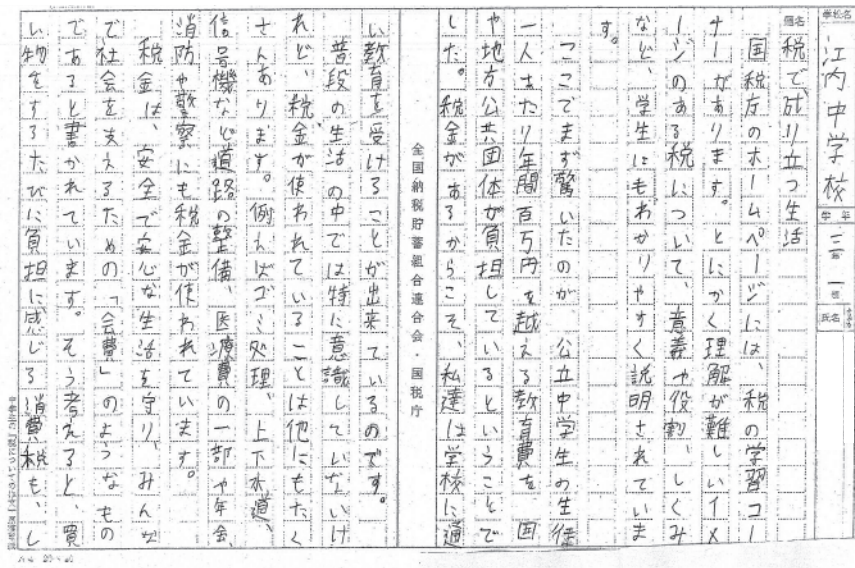 学校名
江内中学校
学年
三年
一組
氏名
題名
税で成り立つ生活
国税庁のホームページには、税の学習コー
ナーがあります。とにかく理解が難しいイメ
ージのある税について、意義や役割、しくみ
など、学生にもわかりやすく説明されていま
す。
ここでまず驚いたのが、公立中学生の生徒
一人当たり年間百万円を越える教育費を、国
や地方公共団体が負担しているということで
した。税金があるからこそ、私達は学校に通
全国納税貯蓄組合連合会・国税庁
い教育を受けることが出来ているのです。
普段の生活の中では特に意識していないけ
れど、税金が使われていることは他にもたく
さんあります。例えばゴミ処理、上下水道、
信号機など道路の整備、医療費の一部や年金、
消防や警察にも税金が使われています。
税金は、安全で安心な生活を守り、みんな
で社会を支えるための「会費」のようなもの
であると書かれています。そう考えると、買
い物をするたびに負担に感じる消費税も、し